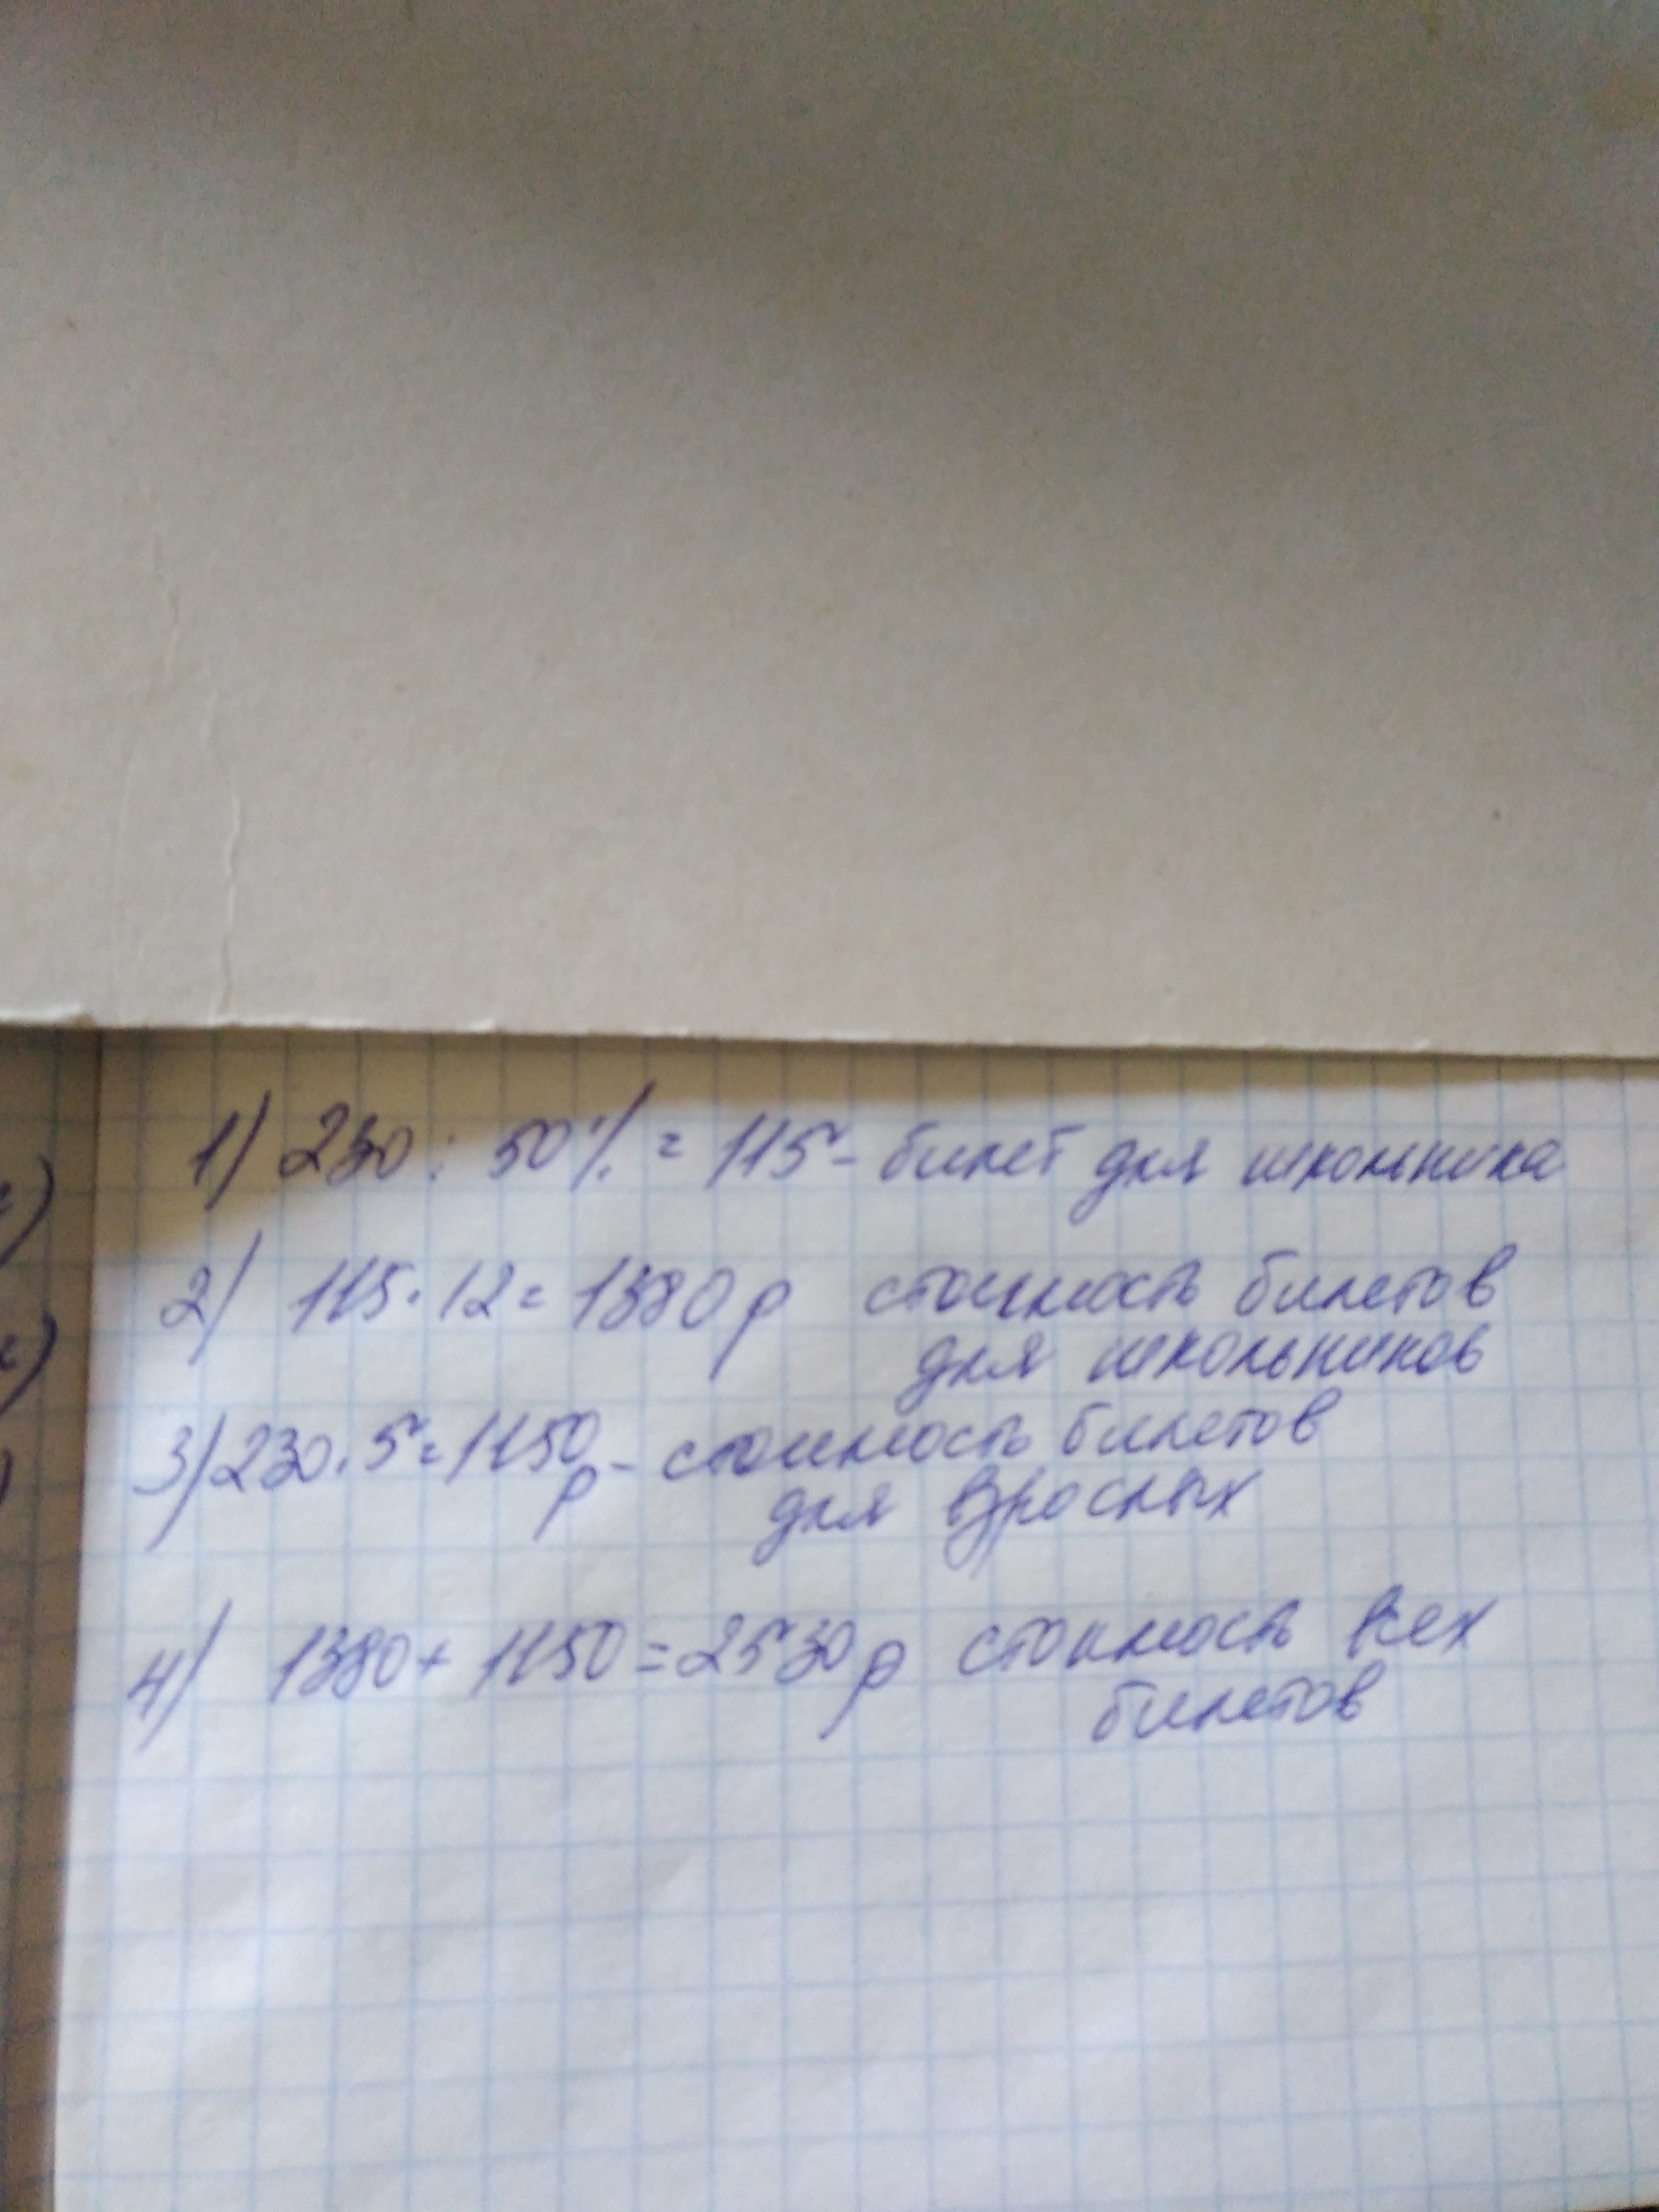 1) 230 : 50% = 115 - билет для школьника
2) 115 · 12 = 1380 р стоимость билетов
для школьников
3) 230 · 5 = 1150 р - стоимость билетов
для взрослых
4) 1380 + 1150 = 2530 р стоимость всех
билетов